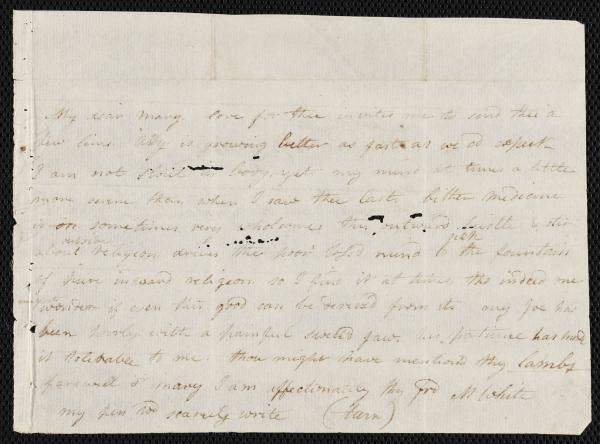 My dear Mary. Love for thee invites me to send thee a
few lines Ally is growing better as fast as we cd expect
I am not in body yet my mind at times a little
more than when I saw thee last. bitter medicine
is sometimes very wholesome the outward bustle & stir
outside self
about religion drives the poor mind to the fountain
of pure inward religion so I find it at times, tho indeed one
wonders if even this good can be derived from it my Joe has
been poorly with a painful swelled jaw. his patience has made
it tolerable to me. thou might have mentioned thy lambs
farewell dr Mary I am affectionately thy frd M White
my pen wd scarcely write (turn)